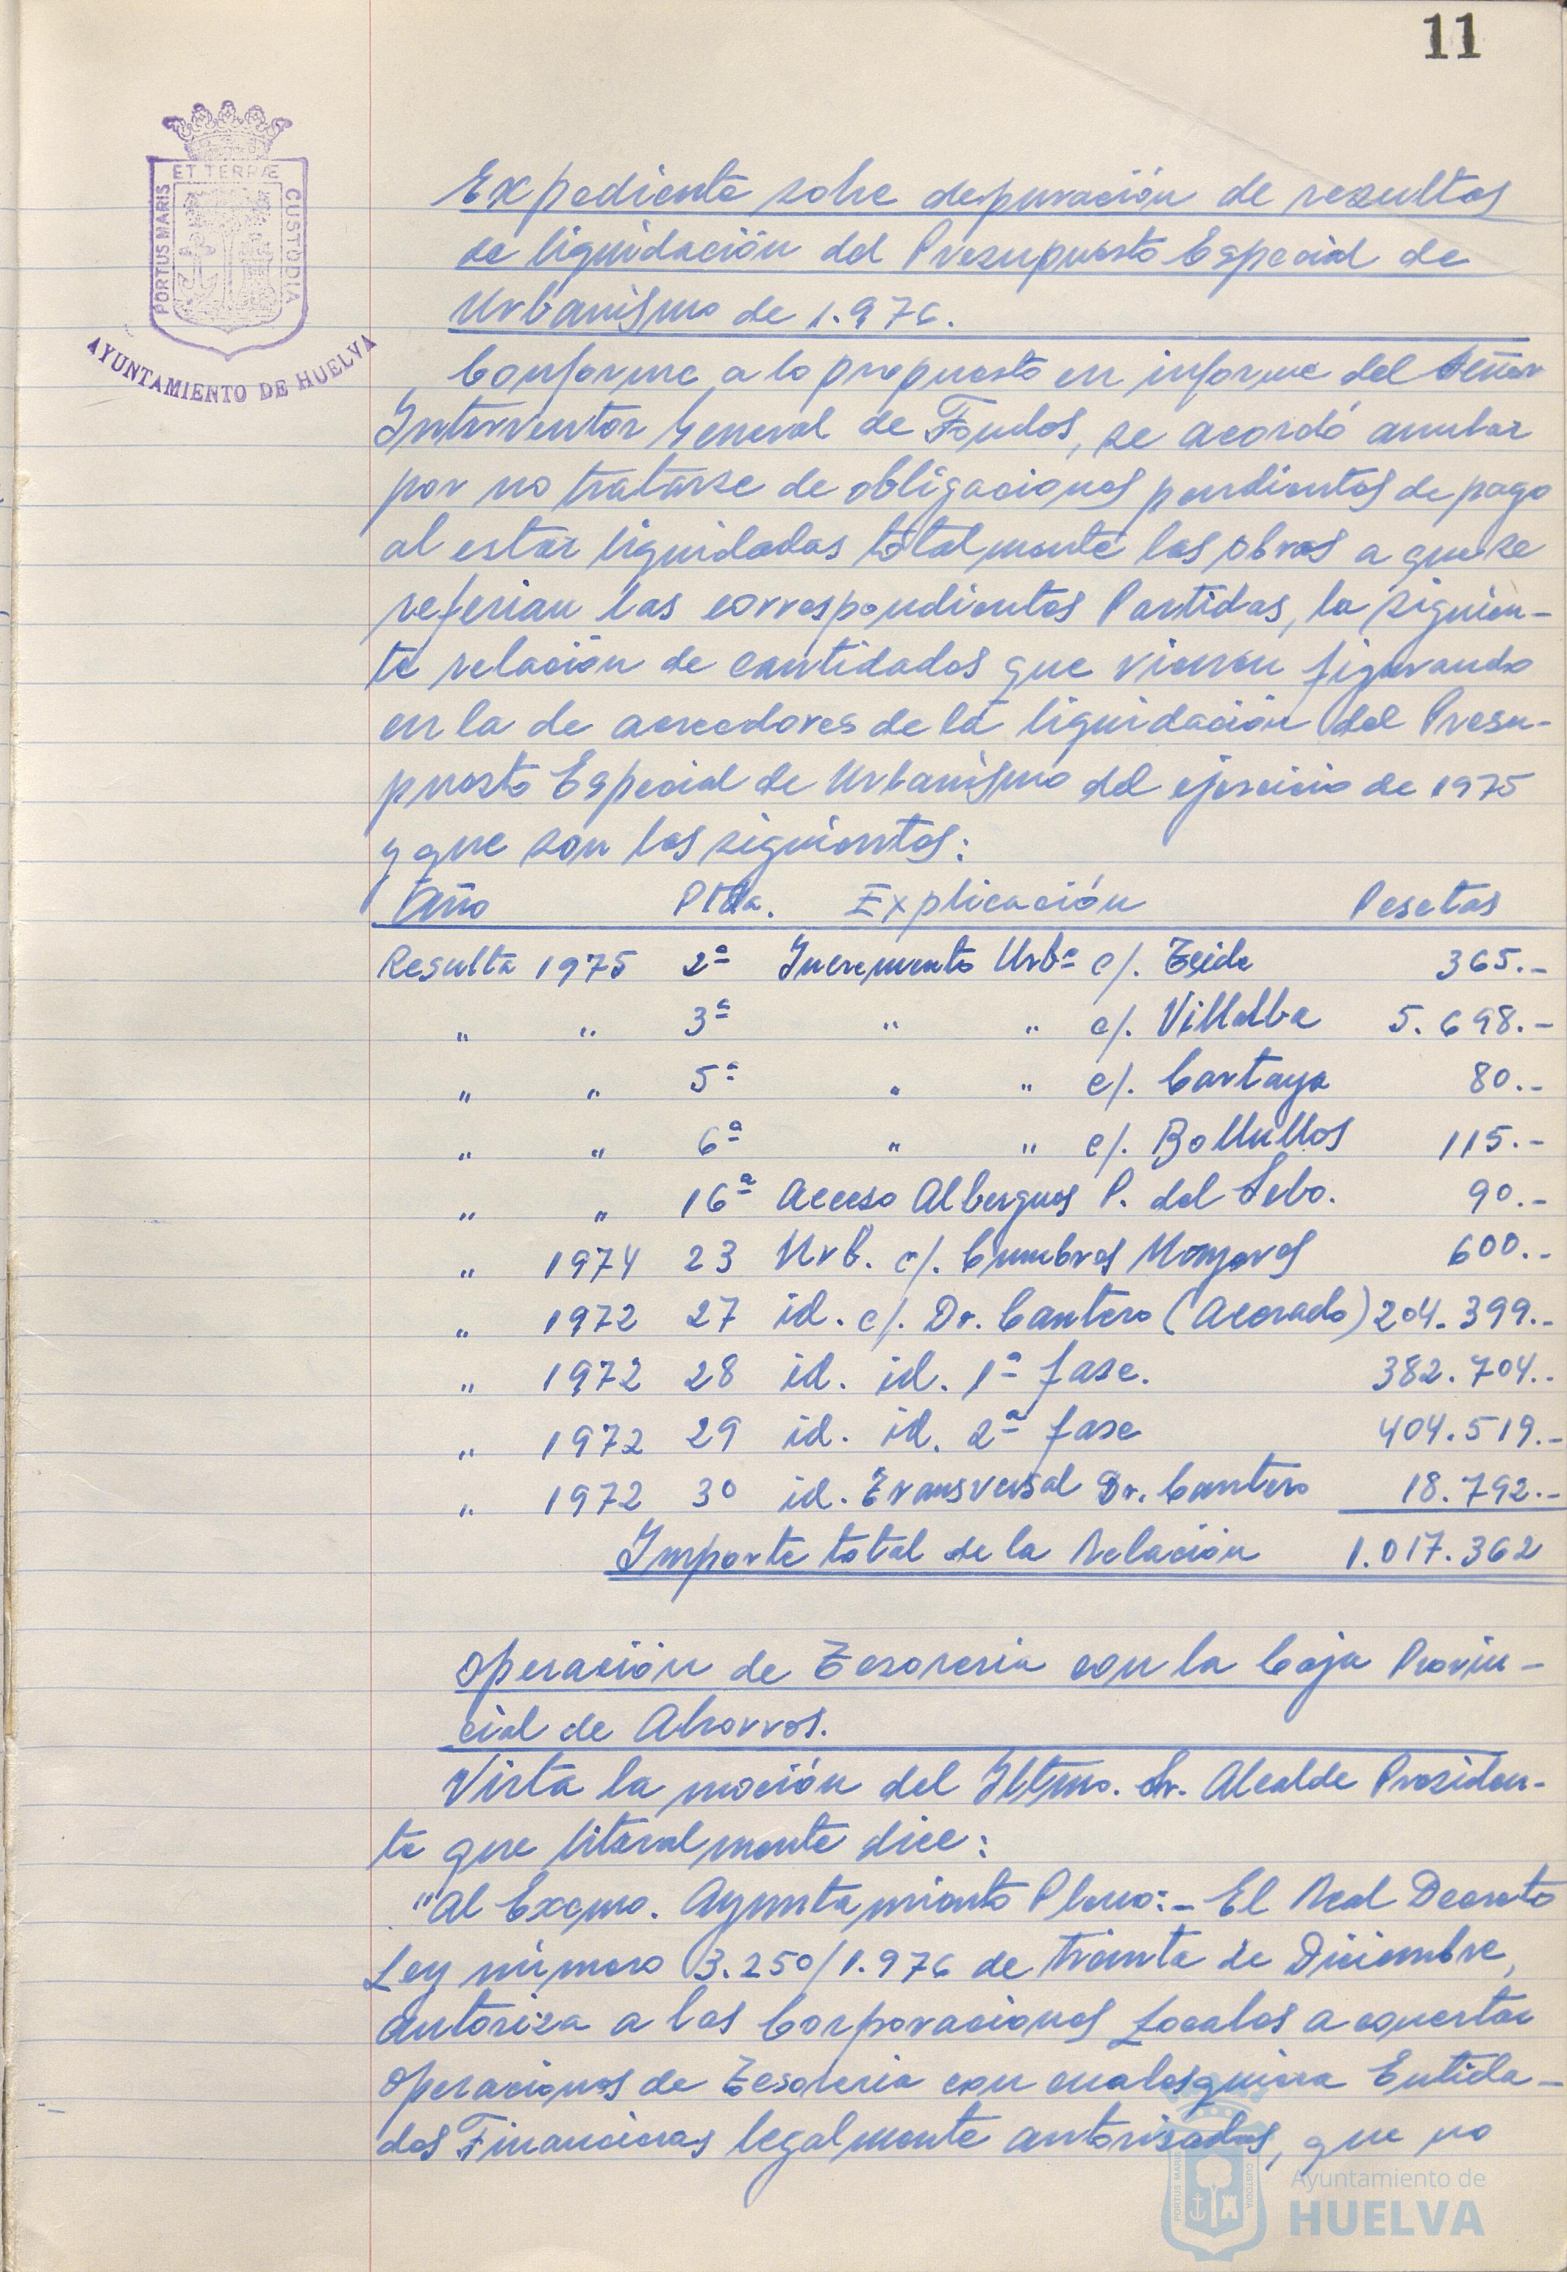 11
ET TERRÆ
PORTUS MARIS
CUSTODIA
AYUNTAMIENTO DE HUELVA
Expediente sobre depuración de resultas
de liquidación del Presupuesto Especial de
Urbanismo de 1.976.
Conforme a lo propuesto en informe del Señor
Interventor General de Fondos, se acordó anular
por no tratarse de obligaciones pendientes de pago
al estar liquidadas totalmente las obras a que se
referian las correspondientes Partidas, la siguien-
te relación de cantidades que vienen figurando
en la de acreedores de la liquidación del Presu-
puesto Especial de Urbanismo del ejercicio de 1975
y que son las siguientes:
Año Ptda. Explicación Pesetas
Resulta 1975 2ª Incremento Urbª c/. Teide 365.-
" " 3ª " " c/. Villalba 5.698.-
" " 5ª " " c/. Cartaya 80.-
" " 6ª " " c/. Bollullos 115.-
" " 16ª Acceso Albergues P. del Sebo. 90.-
" 1974 23 Urb. c/. Cumbres Mayores 600.-
" 1972 27 id. c/. Dr. Cantero (Acerado) 204.399.-
" 1972 28 id. id. 1ª fase. 382.704.-
" 1972 29 id. id. 2ª fase 404.519.-
" 1972 30 id. Transversal Dr. Cantero 18.792.-
Importe total de la Relación 1.017.362
Operación de Tesoreria con la Caja Provin-
cial de Ahorros.
Vista la moción del Iltmo. Sr. Alcalde Presiden-
te que literalmente dice:
"Al Excmo. Ayuntamiento Pleno:- El Real Decreto
Ley número 3.250/1.976 de treinta de Diciembre,
autoriza a las Corporaciones Locales a concertar
operaciones de Tesoreria con cualesquiera Entida-
des Financieras legalmente autorizadas, que no
PORTUS MARIS
CUSTODIA
Ayuntamiento de
HUELVA